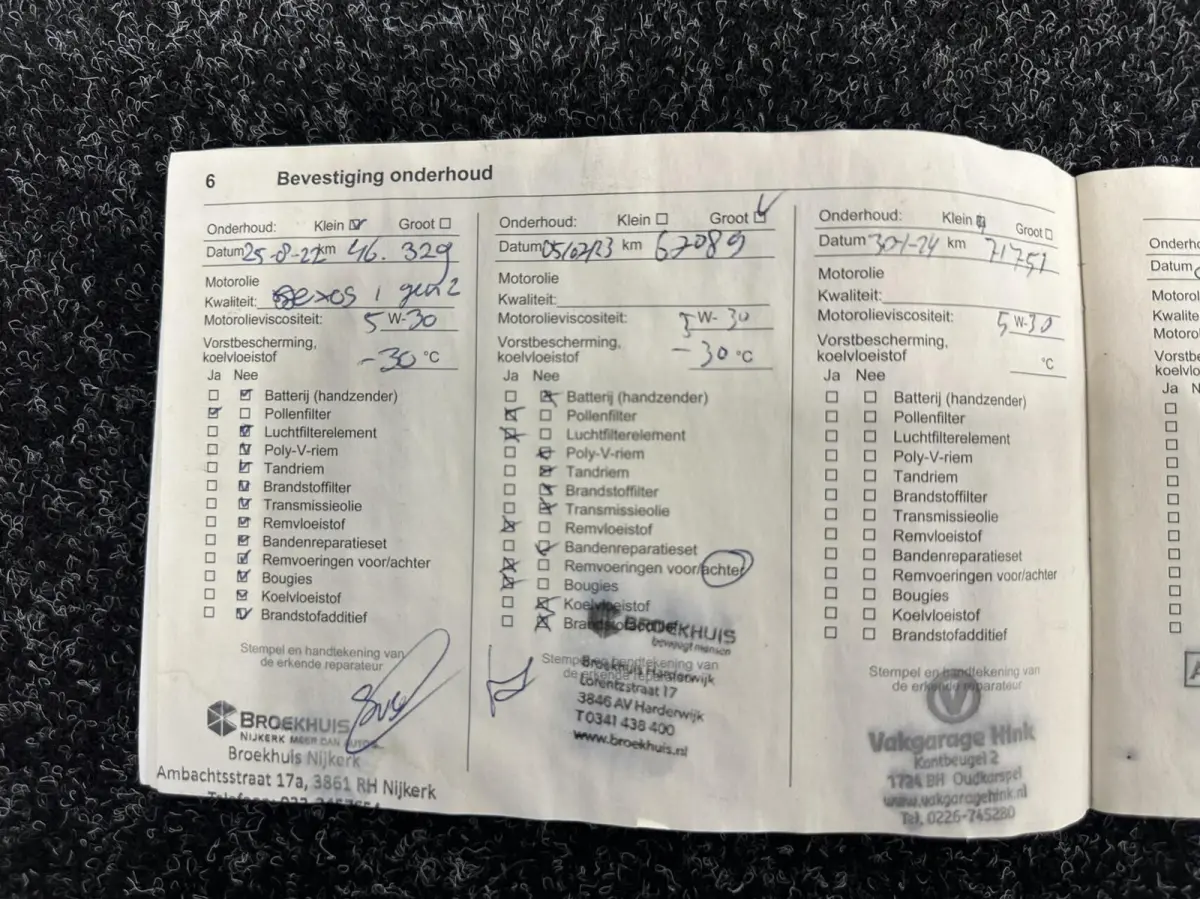 6 Bevestiging onderhoud
Onderhoud: Klein Groot
Datum 25-8-22 km 46.329
Motorolie
Kwaliteit: Dexos 1 gen 2
Motorolieviscositeit: 5 W-30
Vorstbescherming,
koelvloeistof -30 °C
Ja Nee
Batterij (handzender)
Pollenfilter
Luchtfilterelement
Poly-V-riem
Tandriem
Brandstoffilter
Transmissieolie
Remvloeistof
Bandenreparatieset
Remvoeringen voor/achter
Bougies
Koelvloeistof
Brandstofadditief
Stempel en handtekening van
de erkende reparateur
BROEKHUIS
NIJKERK MEER DAN AUTO'S
Broekhuis Nijkerk
Ambachtsstraat 17a, 3861 RH Nijkerk
Onderhoud: Klein Groot
Datum 05/07/23 km 67089
Motorolie
Kwaliteit:
Motorolieviscositeit: 5 W-30
Vorstbescherming,
koelvloeistof -30 °C
Ja Nee
Batterij (handzender)
Pollenfilter
Luchtfilterelement
Poly-V-riem
Tandriem
Brandstoffilter
Transmissieolie
Remvloeistof
Bandenreparatieset
Remvoeringen voor/achter
Bougies
Koelvloeistof
Brandstofadditief
BROEKHUIS
beweegt mensen
Stempel en handtekening van
de erkende reparateur
Broekhuis Harderwijk
Lorentzstraat 17
3846 AV Harderwijk
T 0341 438 400
www.broekhuis.nl
Onderhoud: Klein Groot
Datum 30-1-24 km 71751
Motorolie
Kwaliteit:
Motorolieviscositeit: 5 W-30
Vorstbescherming,
koelvloeistof °C
Ja Nee
Batterij (handzender)
Pollenfilter
Luchtfilterelement
Poly-V-riem
Tandriem
Brandstoffilter
Transmissieolie
Remvloeistof
Bandenreparatieset
Remvoeringen voor/achter
Bougies
Koelvloeistof
Brandstofadditief
Stempel en handtekening van
de erkende reparateur
V
Vakgarage Hink
Kantbeugel 2
1724 BH Oudkarspel
www.vakgaragehink.nl
Tel. 0226-745280
Onderho
Datum
Motoro
Kwalite
Motoro
Vorstbe
koelvlo
Ja N